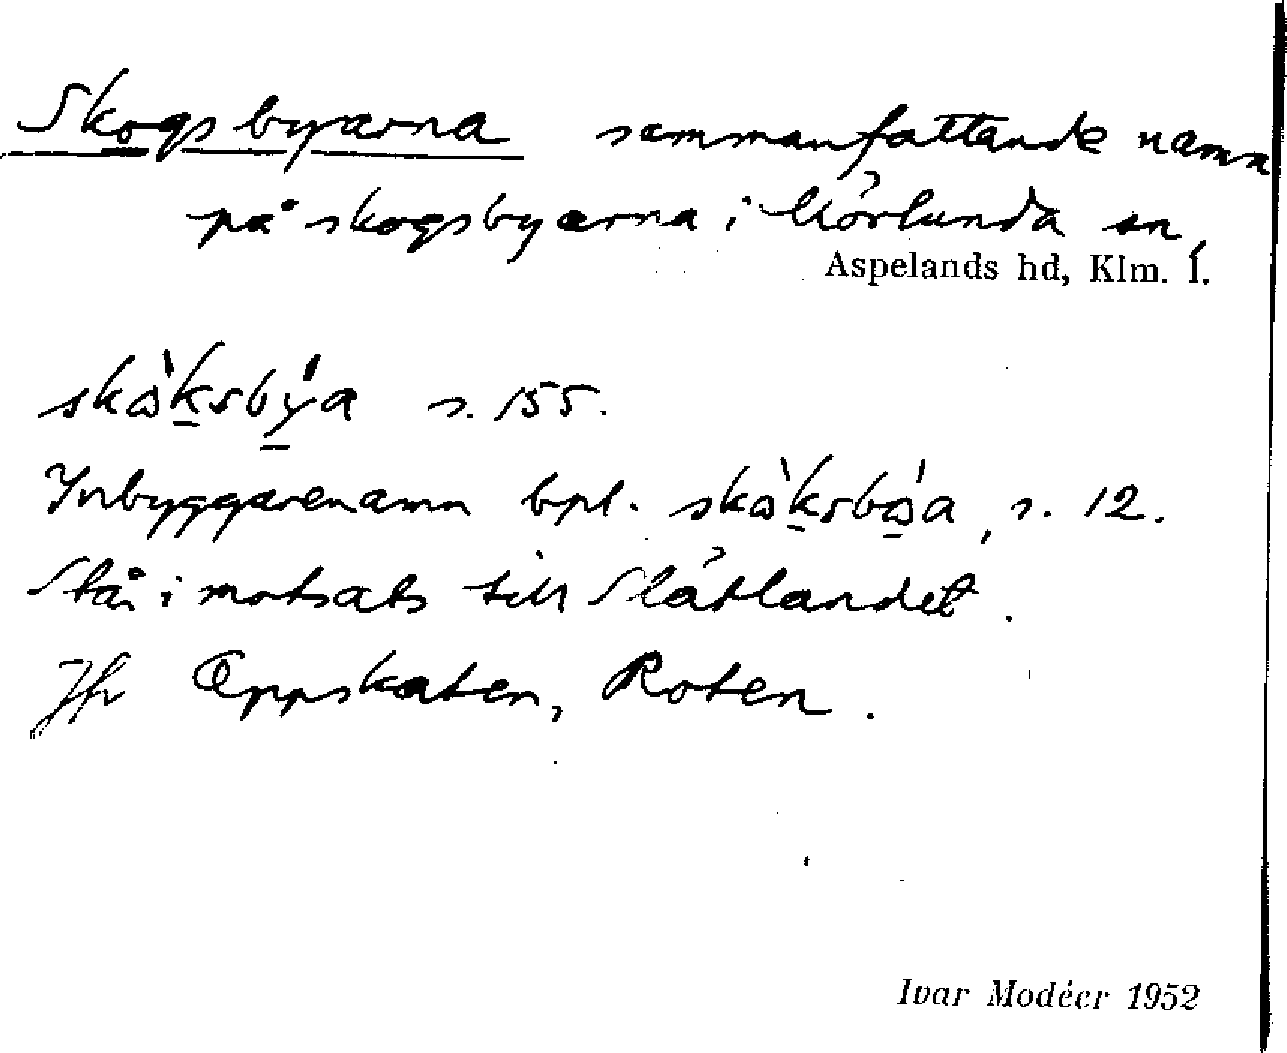 Skogsbyarna sammanfattande namn
på skogsbyarna i Mörlunda sn,
Aspelands hd, Klm. l.
skὼksbýa s. 155.
Inbyggarenamn bpl. skὼksbώa, s. 12.
Står i motsats till Slätlandet.
Jfr Oppskaten, Roten.
Ivar Modéer 1952